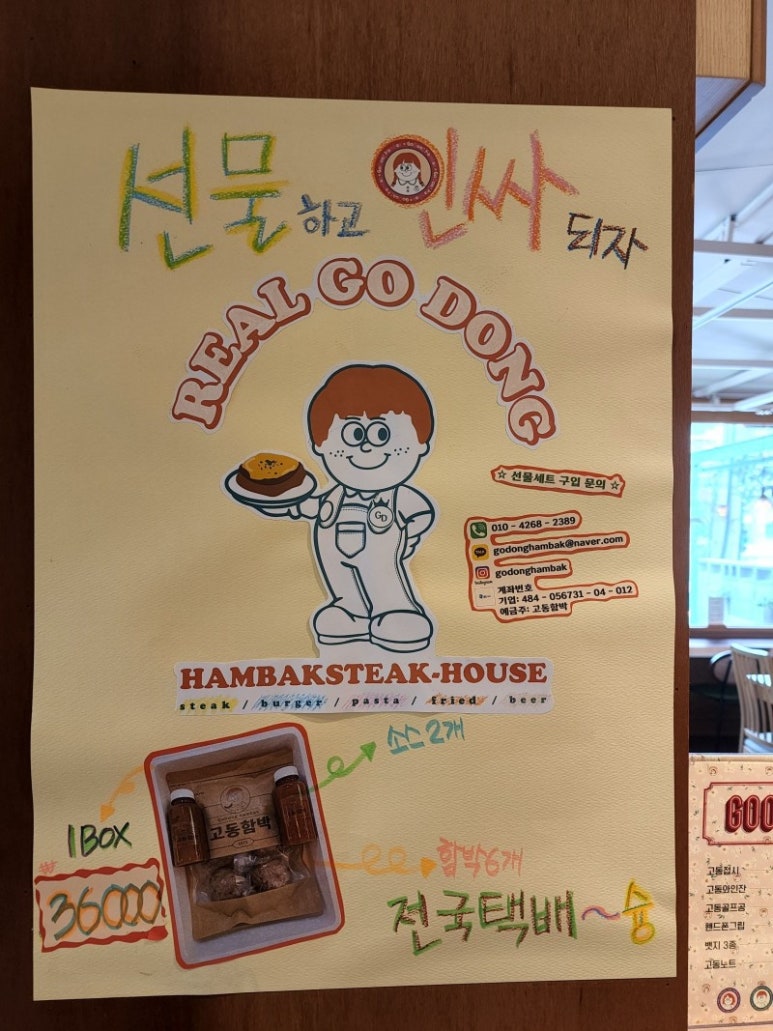 선물하고 인싸 되자
REAL GO DONG
GD
☆ 선물세트 구입 문의 ☆
010 - 4268 - 2389
godonghambak@naver.com
Instagram
godonghambak
계좌번호
기업: 484 - 056731 - 04 - 012
예금주: 고동함박
HAMBAKSTEAK-HOUSE
steak / burger / pasta / fried / beer
소스2개
고동함박
1BOX
₩
36000
함박6개
전국택배~슝
GOO
고동접시
고동와인잔
고동골프공
핸드폰그립
뱃지 3종
고동노트